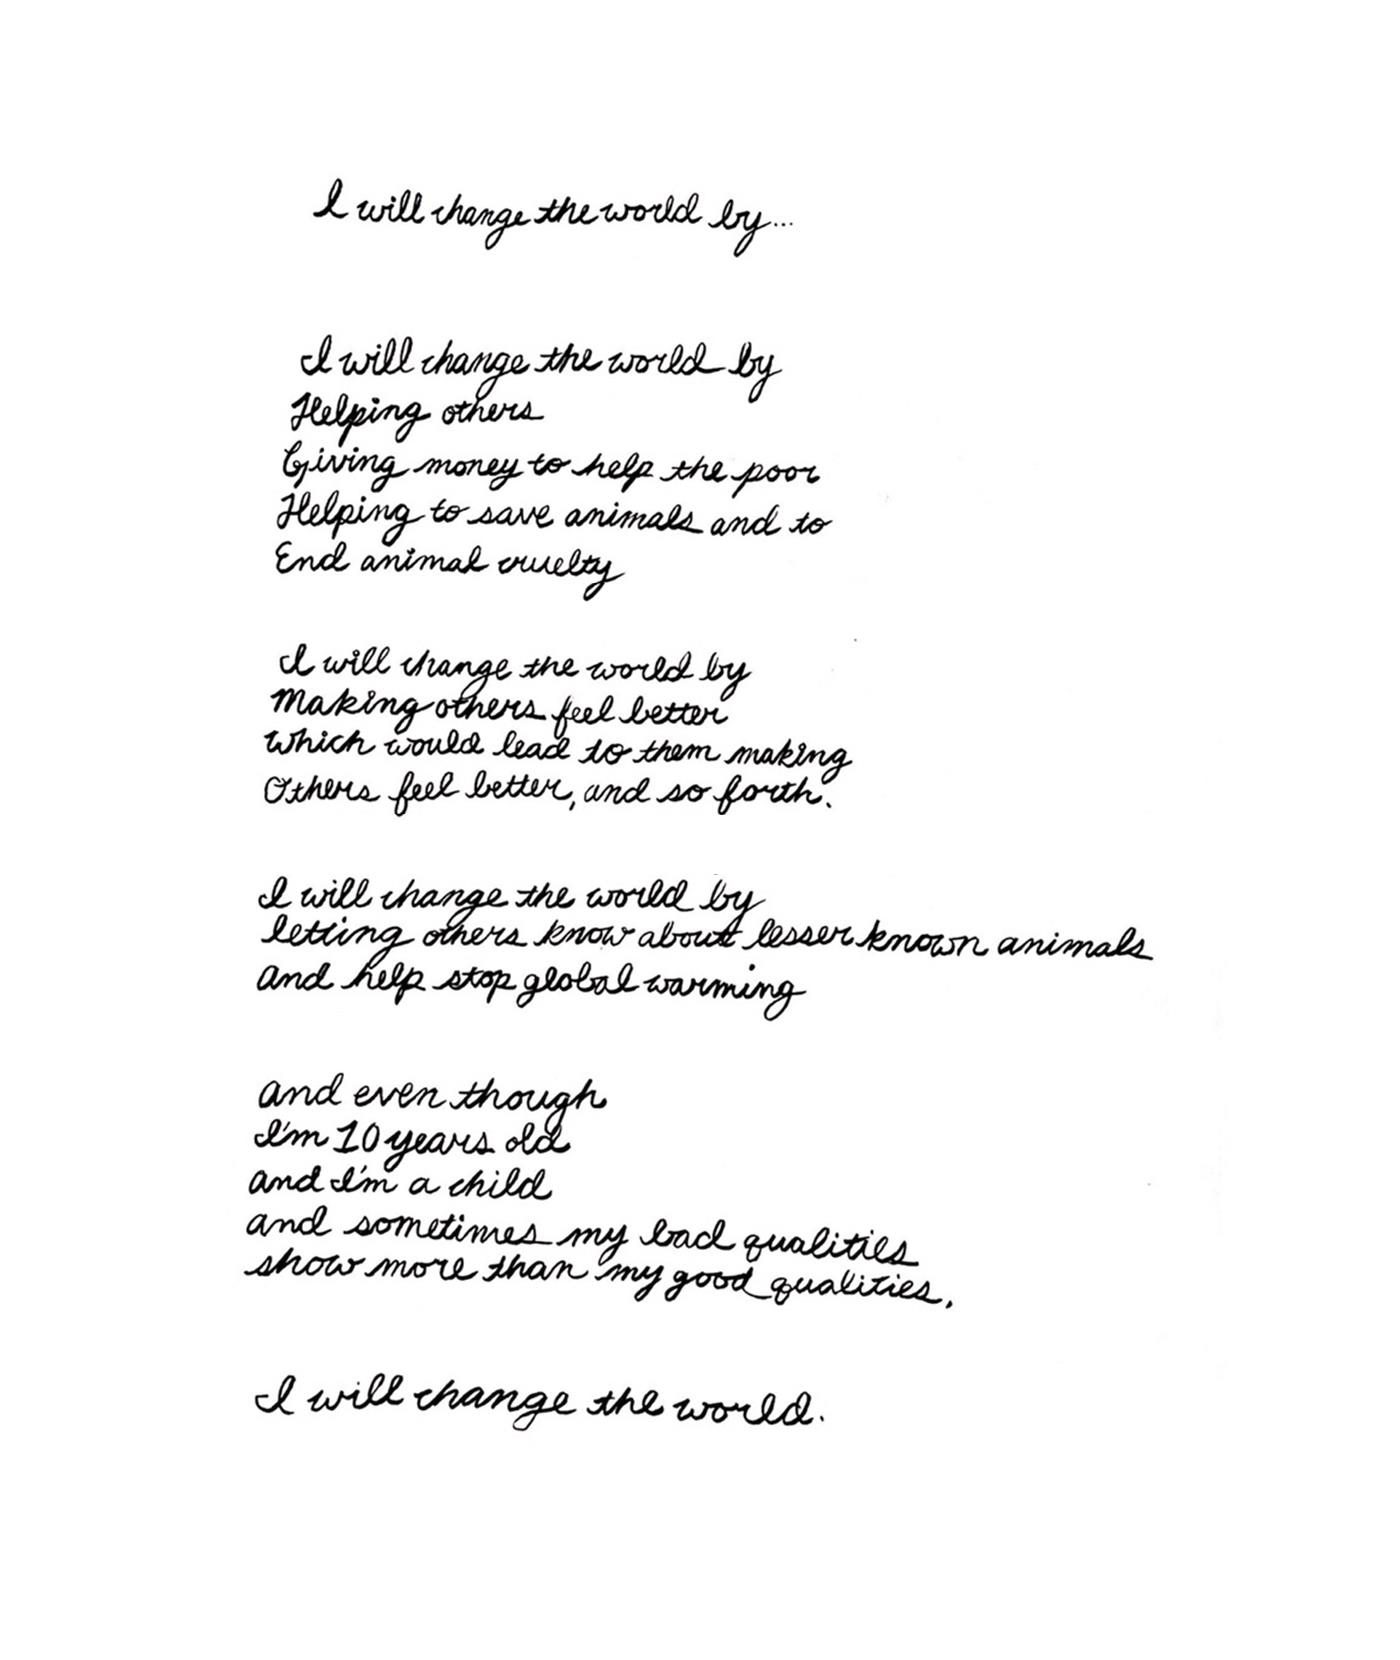 I will change the world by...
I will change the world by
Helping others
Giving money to help the poor
Helping to save animals and to
End animal cruelty
I will change the world by
Making others feel better
which would lead to them making
Others feel better, and so forth.
I will change the world by
letting others know about lesser known animals
and help stop global warming
and even though
I'm 10 years old
and I'm a child
and sometimes my bad qualities
show more than my good qualities,
I will change the world.